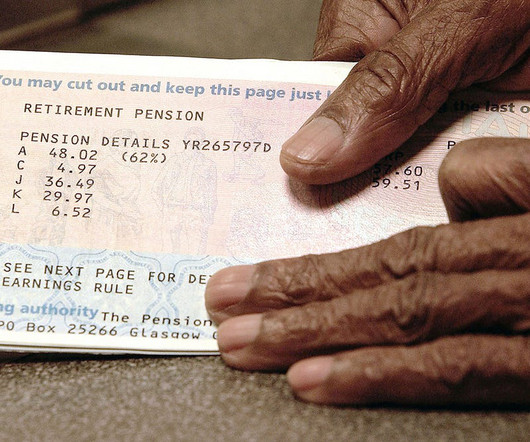 You may cut out and keep this page just
the last o
RETIREMENT PENSION
PENSION DETAILS YR265797D
A 48.02 (62%)
C 4.97
J 36.49 37.60
K 29.97 59.51
L 6.52
SEE NEXT PAGE FOR DE
EARNINGS RULE
ng authority The Pension
PO Box 25266 Glasgow